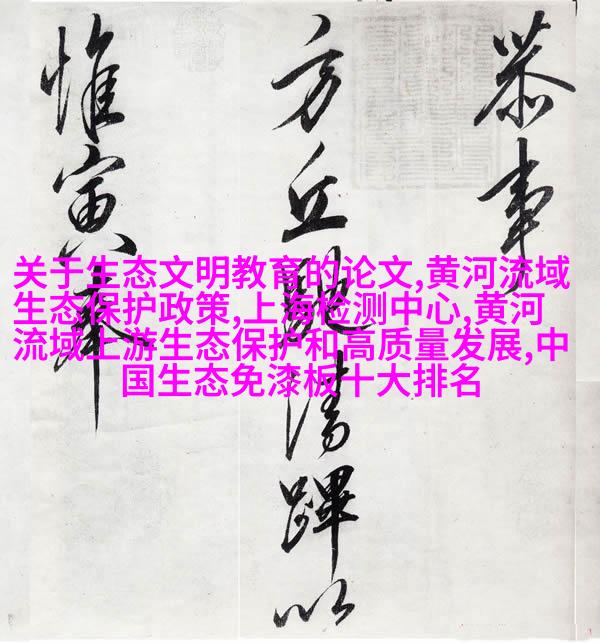 恭事
方丘馳清蹕以
惟寅奉
关于生态文明教育的论文,黄河流域
生态保护政策,上海检测中心,黄河
流域上游生态保护和高质量发展,中
国生态免漆板十大排名